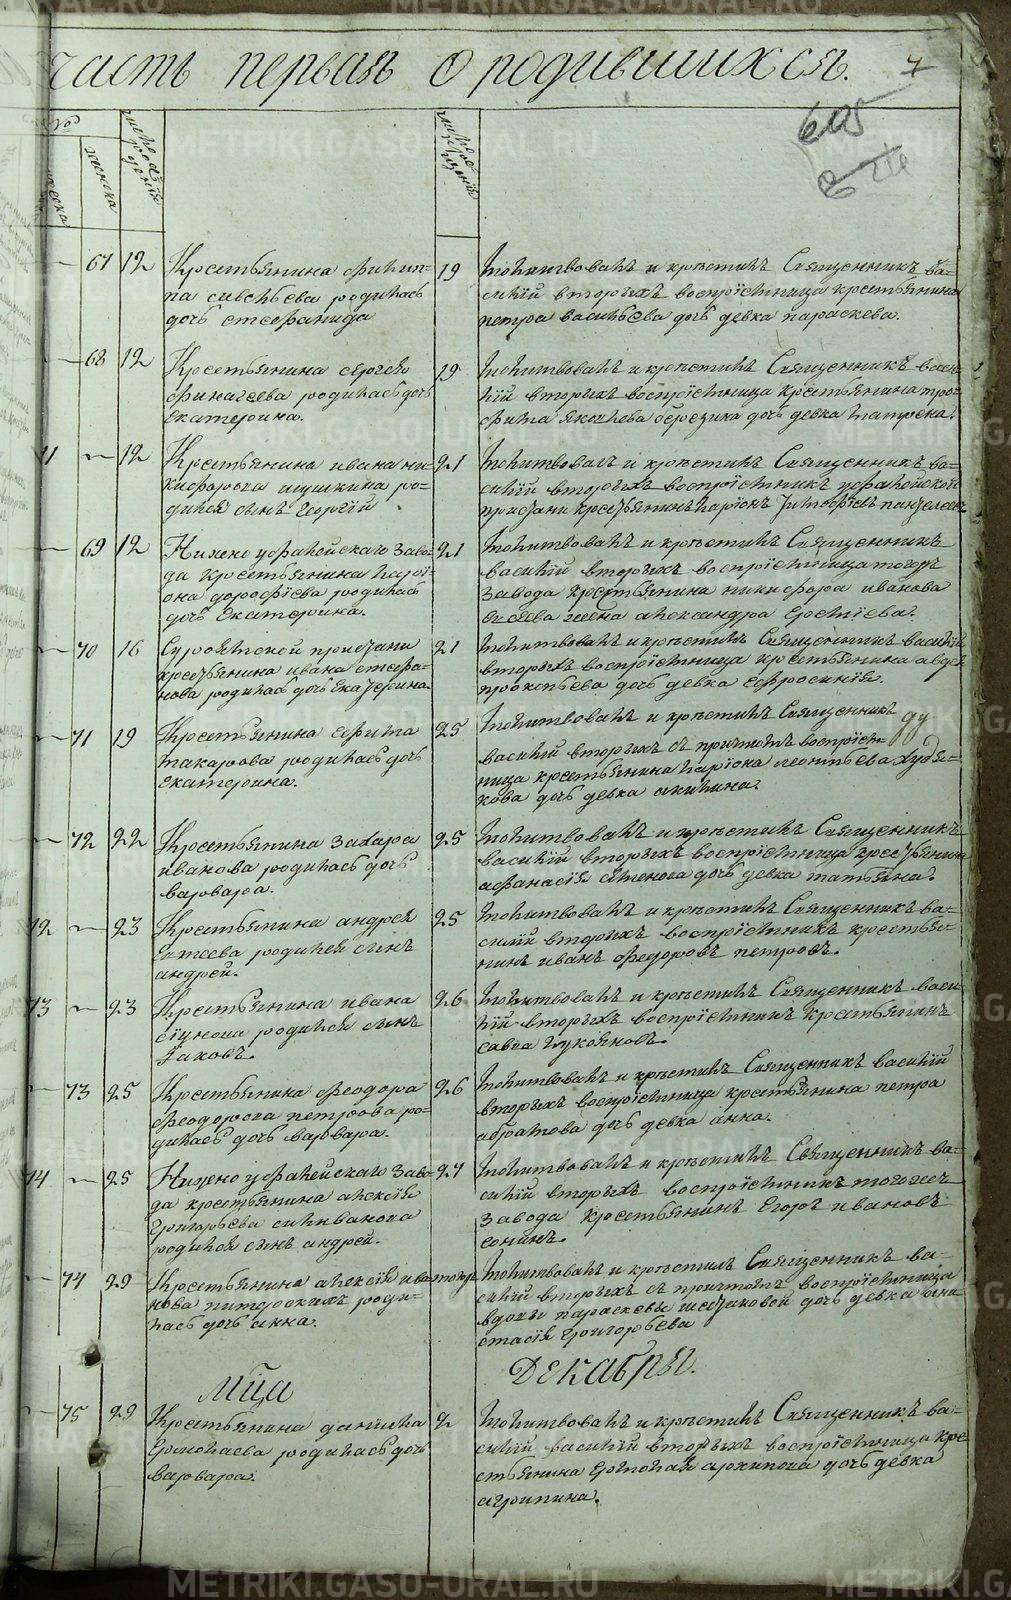 часть первая о родившихся.
7
605
№
женска
67 12 Крестьянина Филип=
па савельева родилась
дочь стефанида
19 молитвовалъ и крестилъ Священникъ ва=
силий вторыхъ воспрiемница крестьянина
петра васильева дочь девка параскева.
68 12 Крестьянина сергея
родилась дочь
Екатерина.
19 молитвовалъ и крестилъ Священникъ васи
лiй вторыхъ воспрiемница крестьянина тро
фима яковлева дочь девка матрена.
12 Крестьянина ивана ни=
кифорова ро=
дился сынъ Георгiй
21 молитвовалъ и крестилъ Священникъ ва=
силiй вторыхъ воспрiемникъ уфалейской
пристани крестьянинъ
69 12 Нижно уфалейскаго заво=
да крестьянина ларi=
она дорофiева родилась
дочь Екатерина.
21 молитвовалъ и крестилъ Священникъ
василiй вторыхъ воспрiемница тогожъ
завода крестьянина никифора иванова
жена александра
70 16 Суроямской пристани
крестьянина ивана стефа=
нова родилась дочь Екатерина.
21 молитвовалъ и крестилъ Священникъ василiй
вторыхъ воспрiемница крестьянина авдея
прокопьева дочь девка Ефросинiя.
71 19 Крестьянина
макарова родилась дочь
Екатерина.
25 молитвовалъ и крестилъ Священникъ
василiй вторыхъ съ причтомъ воспрiем=
ница крестьянина ларiона леонтьева худя=
кова дочь девка акилина.
72 22 Крестьянина Захара
иванова родилась дочь
варвара.
25 молитвовалъ и крестилъ Священникъ
василiй вторыхъ воспрiемница крестьянина
афанасiя семенова дочь девка татьяна.
72 23 Крестьянина андрея
Евсеева родился сынъ
андрей.
25 молитвовалъ и крестилъ Священникъ ва=
силiй вторыхъ воспрiемникъ крестья=
нинъ иванъ федоровъ петровъ.
73 23 Крестьянина ивана
родился сынъ
Iаковъ.
26 молитвовалъ и крестилъ Священникъ васи=
лiй вторыхъ воспрiемникъ Крестьянинъ
савва лукояновъ.
73 25 Крестьянина феодора
феодорова петрова ро=
дилась дочь варвара.
26 молитвовалъ и крестилъ Священникъ василiй
вторыхъ воспрiемница крестьянина петра
дочь девка анна.
74 25 Нижно уфалейскаго заво=
да крестьянина алексiя
Григорьева селиванова
родился сынъ андрей.
27 молитвовалъ и крестилъ Священникъ ва=
силiй вторыхъ воспрiемникъ тогожъ
завода крестьянинъ Егоръ ивановъ
сонинъ.
74 29 Крестьянина алексiя ива=
нова питерскихъ роди=
лась дочь анна.
молитвовалъ и крестилъ Священникъ ва=
силiй вторыхъ съ причтомъ воспрiемница
вдовы параскевы дочь девка ана
стасiя Григорьева
Мца Декабря.
75 29 Крестьянина данiила
Ермолаева родилась дочь
варвара.
2 молитвовалъ и крестилъ Священникъ ва=
силiй василiй вторыхъ воспрiемница кре
стьянина Ермолая архипова дочь девка
агрипина.
METRIKI.GASO-URAL.RU